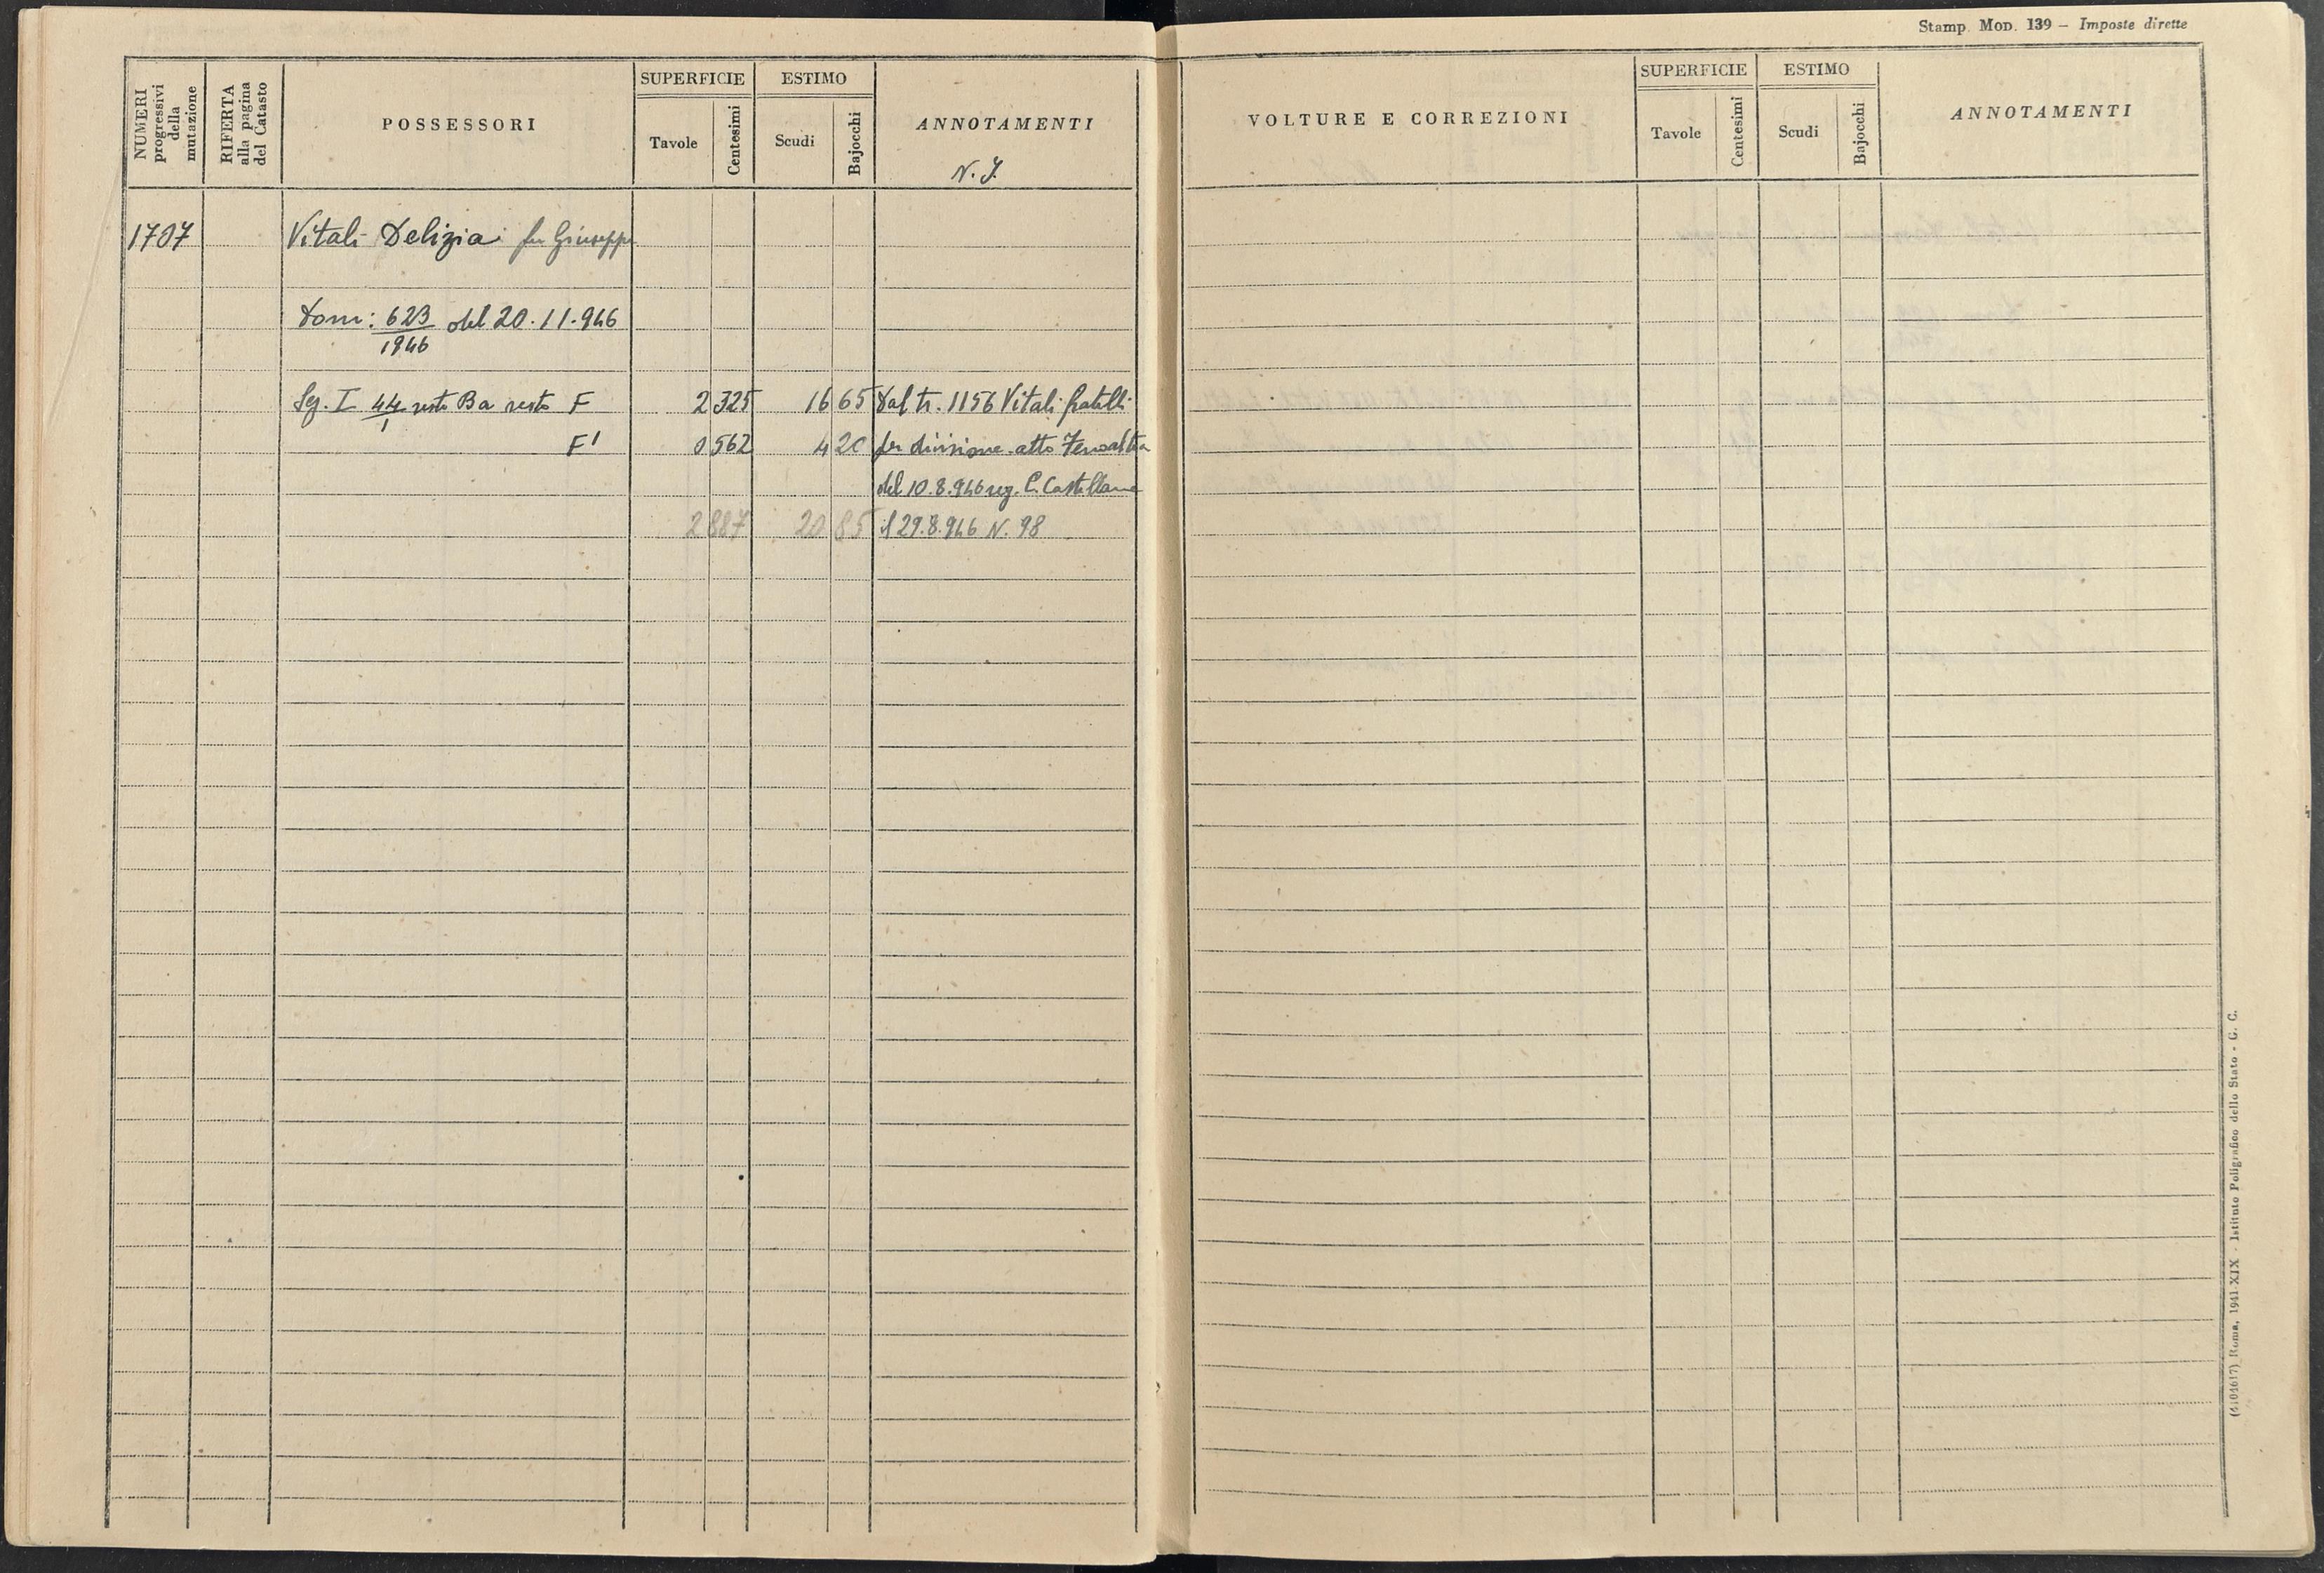 Stamp. Mod. 139 — Imposte dirette
NUMERI progressivi della mutazione
RIFERTA alla pagina del Catasto
POSSESSORI
SUPERFICIE
Tavole
Centesimi
ESTIMO
Scudi
Bajocchi
ANNOTAMENTI
N. I.
1707 Vitali Delizia fu Giuseppe
Dom: 623/1946 del 20.11.946
Sez. I 44/1 resto Ba resto F 2 325 16 65 Dal tr. 1156 Vitali fratelli
F' 0 562 4 20 per divisione atto
del 10.8.946 reg. C. Castellana
2 887 20 85 il 29.8.946 N. 98
VOLTURE E CORREZIONI
SUPERFICIE
Tavole
Centesimi
ESTIMO
Scudi
Bajocchi
ANNOTAMENTI
(4104617) Roma, 1941-XIX - Istituto Poligrafico dello Stato - G. C.